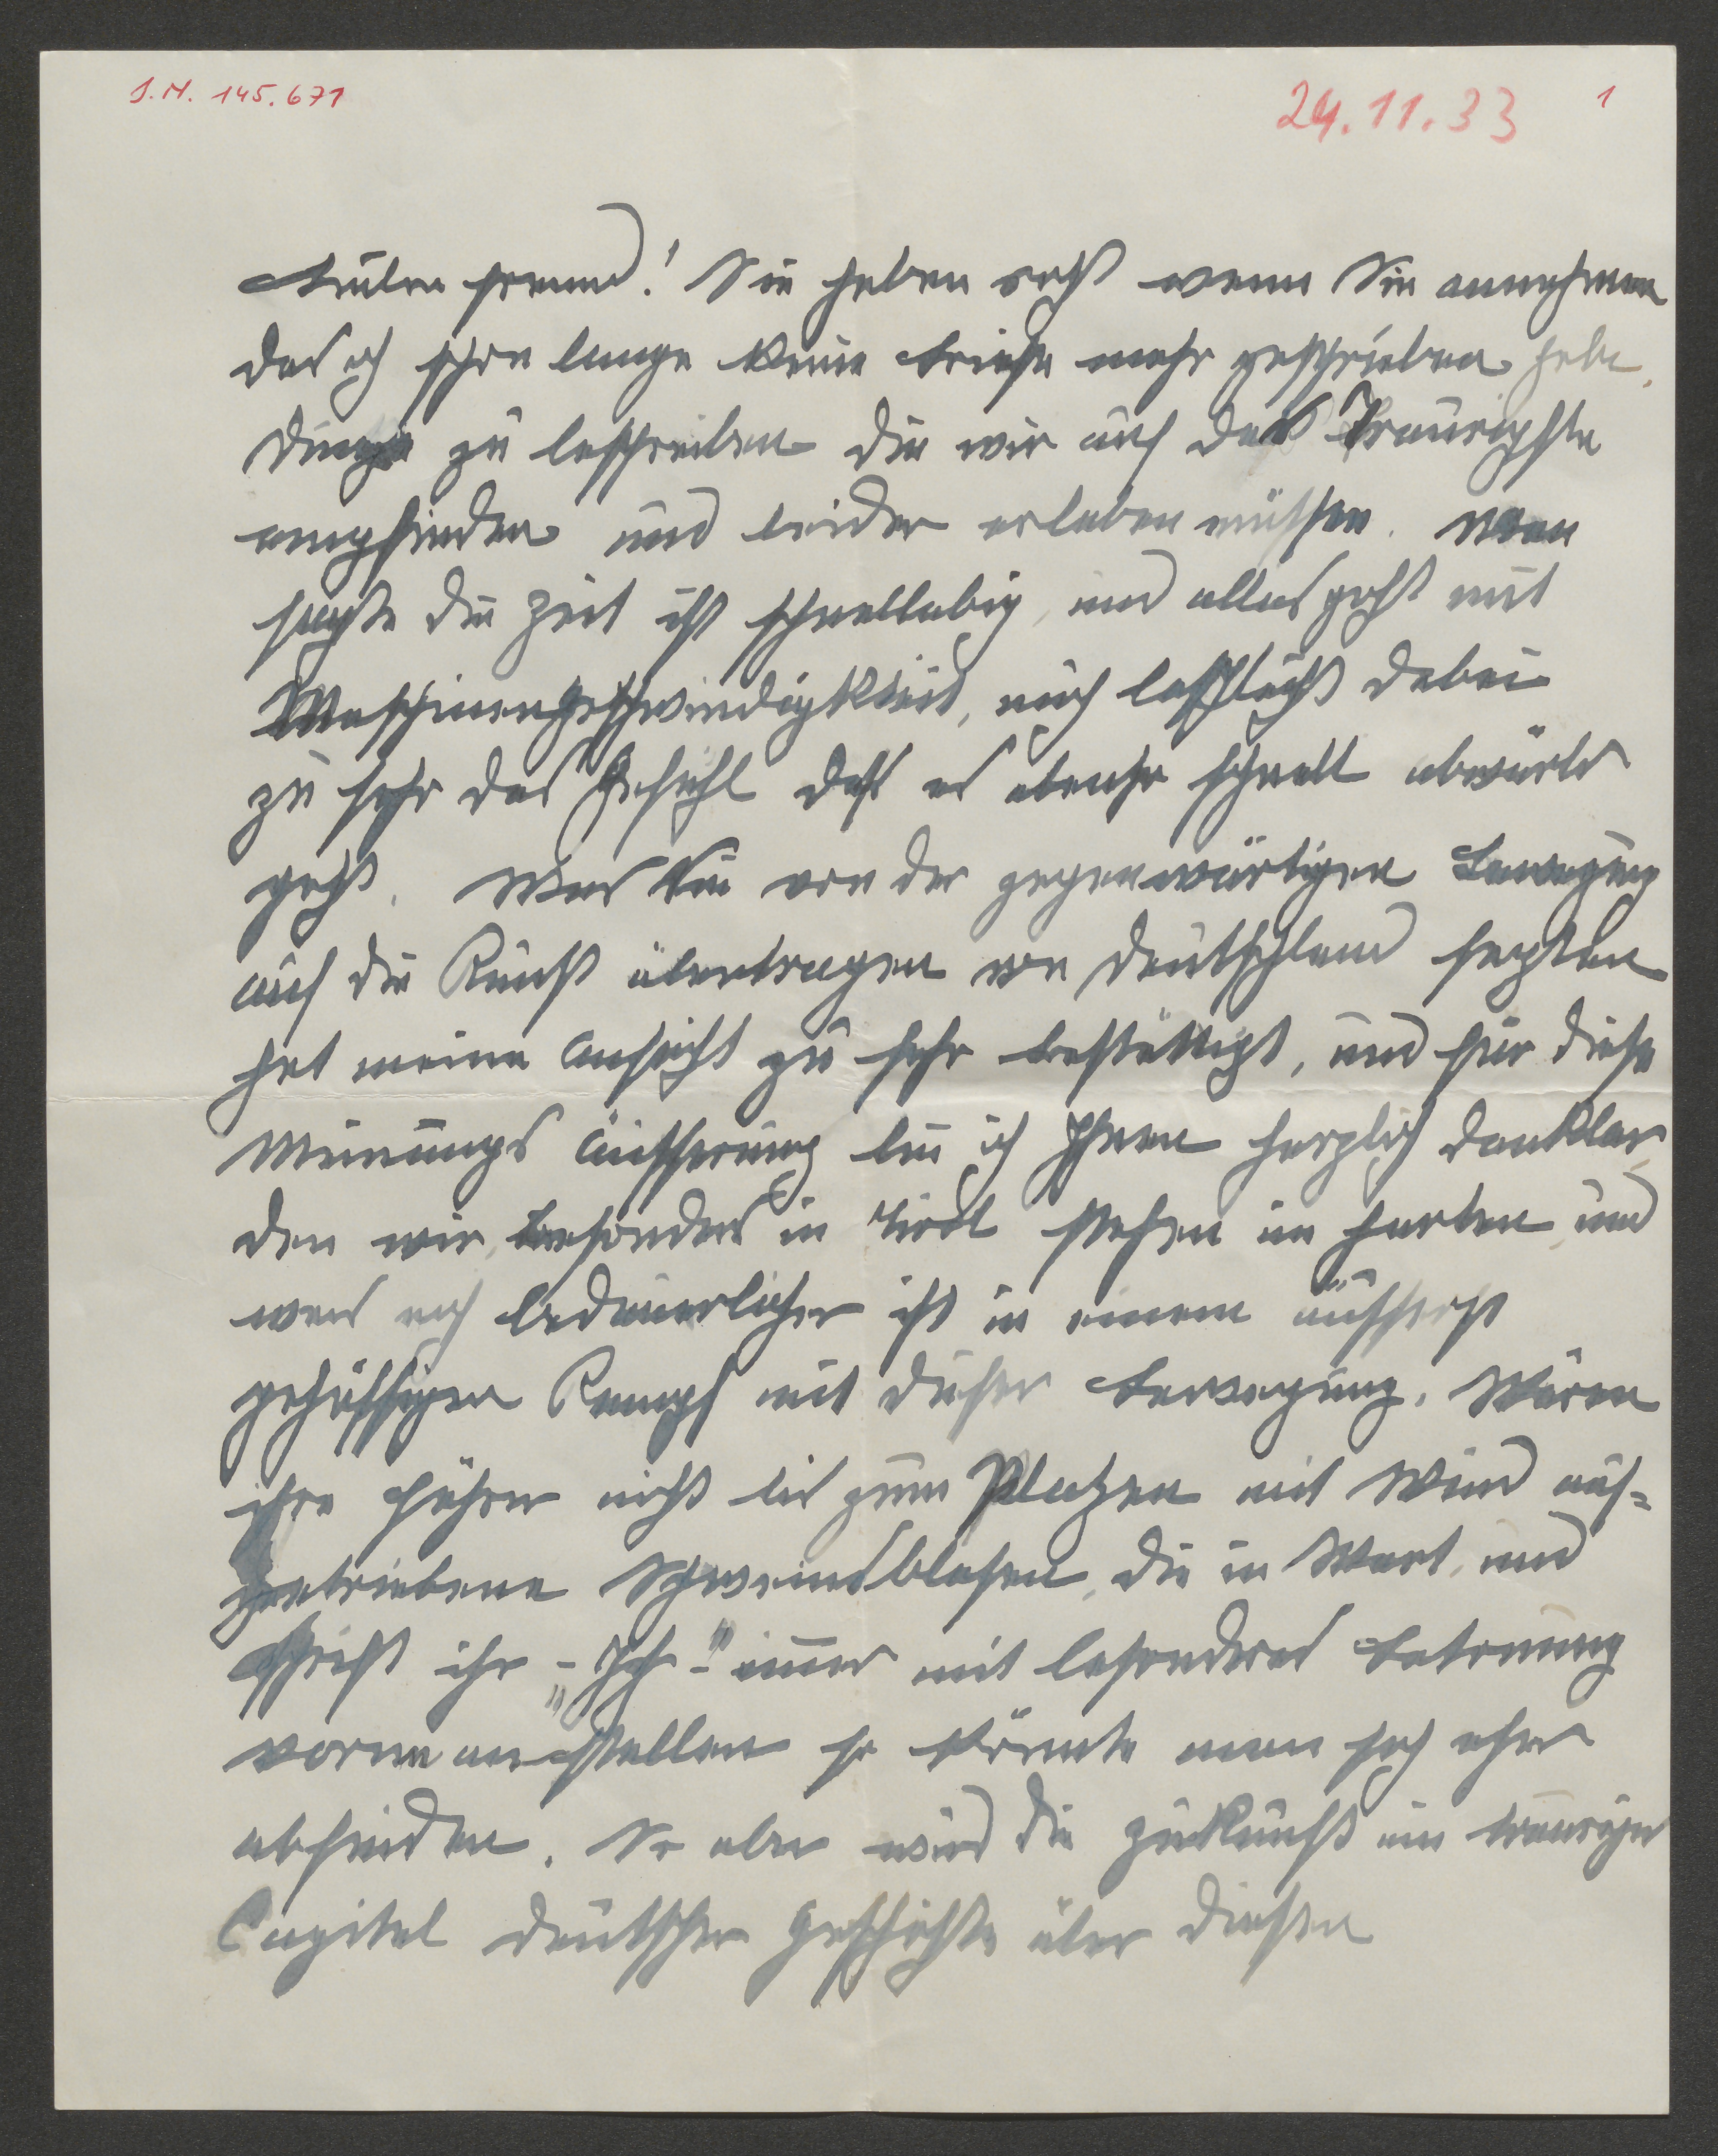 J.N. 145.671
24.11.33
1
Lieber Freund! Sie haben recht wenn Sie annehmen
das ich schon lange keine Briefe mehr geschrieben habe,
Dinge zu beschreiben die wir auf das Traurigste
empfinden und leider erleben müssen. Man
sagte die Zeit ist schnellebig, und alles geht mit
Maschinengeschwindigkeit, mich beschleicht dabei
zu sehr das Gefühl daß es ebenso schnell abwärts
geht. Was Sie von der gegenwärtigen Bewegung
auf die Kunst übertragen von Deutschland sagten
hat meine Ansicht zu sehr bestättigt, und für diese
Meinungs äusserung bin ich Ihnen herzlich dankbar
den wir, besonders in Tirol stehen im harten, und
was noch bedauerlicher ist in einem äusserst
gehässigen Kampf mit dieser Bewegung. Wären
ihre Führer nicht bis zum Platzen mit Wind auf=
getriebene Schweinsblasen, die in Wort, und
Schrift ihr „-Ich-" immer mit besonderer Betonung
vorne anstellen so könnte man sich eher
abfinden. So aber wird die Zukunft ein trauriges
Capitel deutscher Geschichte über diesen